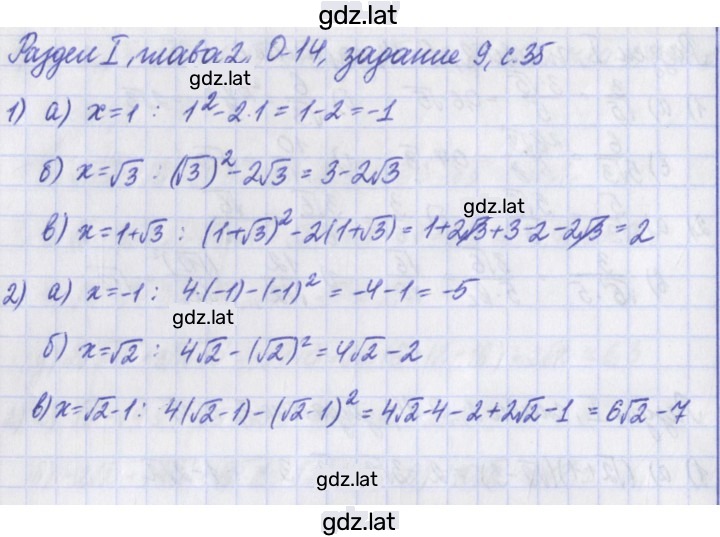 gdz.lat
Раздел I, глава 2. О-14, задание 9, с.35
gdz.lat
1) а) x=1 : 1² - 2·1 = 1-2 = -1
б) x=√3 : (√3)² - 2√3 = 3-2√3
gdz.lat
в) x=1+√3 : (1+√3)² - 2(1+√3) = 1+2√3+3-2-2√3 = 2
2) а) x=-1 : 4·(-1)-(-1)² = -4-1 = -5
gdz.lat
б) x=√2 : 4√2-(√2)² = 4√2-2
в) x=√2-1 : 4(√2-1)-(√2-1)² = 4√2-4-2+2√2-1 = 6√2-7
gdz.lat
gdz.lat